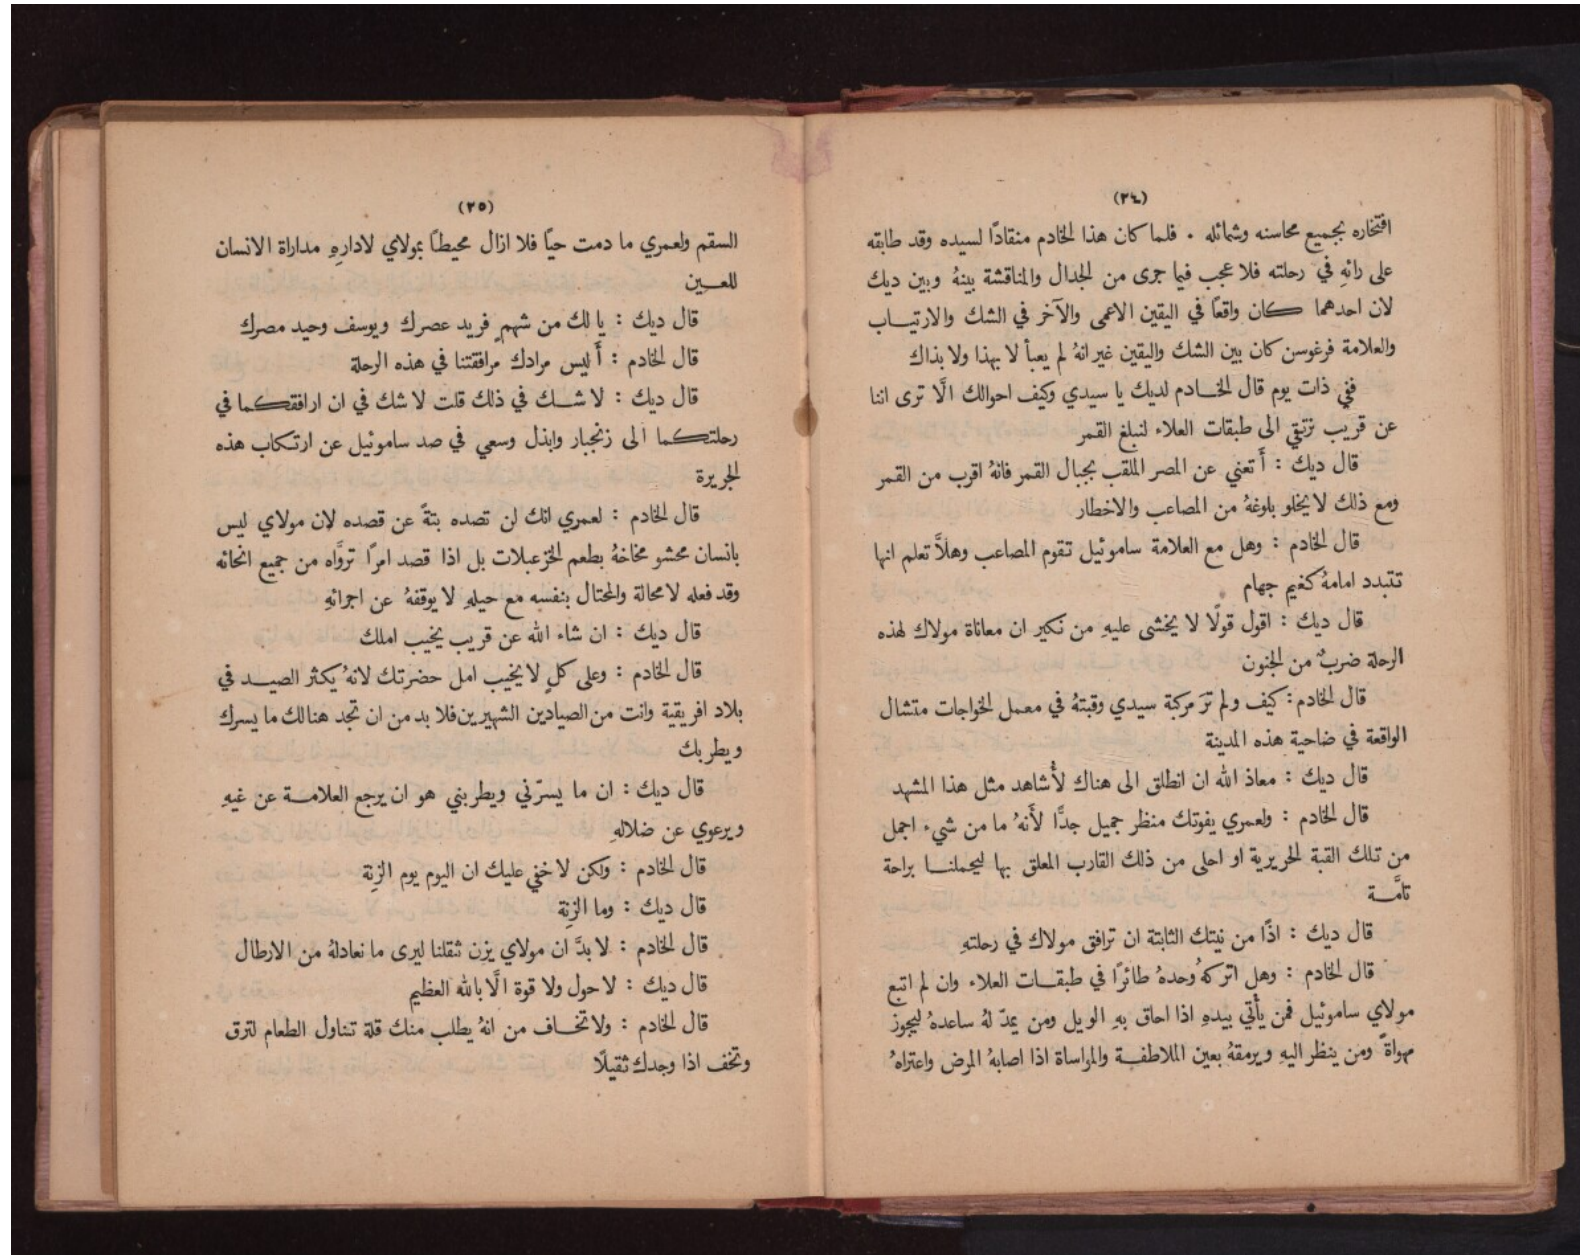 (٢٤)
افتخاره بجميع محاسنه وشمائله . فلما كان هذا الخادم منقادًا لسيده وقد طابقه
على رائهِ في رحلته فلا عجب فيما جرى من الجدال والمناقشة بينهُ وبين ديك
لان احدهما كان واقعًا في اليقين الاعمى والآخر في الشك والارتياب
والعلامة فرغوسن كان بين الشك واليقين غير انهُ لم يعبأ لا بهذا ولا بذاك
ففي ذات يوم قال الخادم لديك يا سيدي وكيف احوالك الَّا ترى اننا
عن قريب نرتقي الى طبقات العلاء لنبلغ القمر
قال ديك : أَتعني عن المصر الملقب بجبال القمر فانهُ اقرب من القمر
ومع ذلك لا يخلو بلوغهُ من المصاعب والاخطار
قال الخادم : وهل مع العلامة ساموئيل تقوم المصاعب وهلَّا تعلم انها
تتبدد امامهُ كغيم جهام
قال ديك : اقول قولًا لا يخشى عليهِ من نكير ان معاناة مولاك لهذه
الرحلة ضربٌ من الجنون
قال الخادم : كيف ولم ترَ مركبة سيدي وقبتهُ في معمل الخواجات متشال
الواقعة في ضاحية هذه المدينة
قال ديك : معاذ الله ان انطلق الى هناك لأُشاهد مثل هذا المشهد
قال الخادم : ولعمري يفوتك منظر جميل جدًّا لأَنهُ ما من شيء اجمل
من تلك القبة الحريرية او احلى من ذلك القارب المعلق بها ليحملنا براحة
تامَّة
قال ديك : اذًا من نيتك الثابتة ان ترافق مولاك في رحلتهِ
قال الخادم : وهل اتركهُ وحدهُ طائرًا في طبقات العلاء وان لم اتبع
مولاي ساموئيل فمن يأتي بيدهِ اذا احاق بهِ الويل ومن يمدّ لهُ ساعدهُ ليجوز
مهواةً ومن ينظر اليهِ ويرمقهُ بعين الملاطفة والمواساة اذا اصابهُ المرض واعتراهُ
(٢٥)
السقم ولعمري ما دمت حيًّا فلا ازال محيطًا بمولاي لادارهِ مداراة الانسان
للعين
قال ديك : يا لك من شهمٍ فريد عصرك ويوسف وحيد مصرك
قال الخادم : أَليس مرادك مرافقتنا في هذه الرحلة
قال ديك : لا شك في ذلك قلت لا شك في ان ارافقكما في
رحلتكما الى زنجبار وابذل وسعي في صد ساموئيل عن ارتكاب هذه
الجريرة
قال الخادم : لعمري انك لن تصده بتةً عن قصده لان مولاي ليس
بانسان محشو مخاخهُ بطعم الخزعبلات بل اذا قصد امرًا تروَّاه من جميع انحائه
وقد فعله لا محالة والمحتال بنفسه مع حيلهِ لا يوقفهُ عن اجرائهِ
قال ديك : ان شاء الله عن قريب يخيب املك
قال الخادم : وعلى كلٍ لا يخيب امل حضرتك لانهُ يكثر الصيد في
بلاد افريقية وانت من الصيادين الشهيرين فلا بد من ان تجد هنالك ما يسرك
ويطربك
قال ديك : ان ما يسرّني ويطربني هو ان يرجع العلامة عن غيهِ
ويرعوي عن ضلالهِ
قال الخادم : ولكن لا خفي عليك ان اليوم يوم الزِنة
قال ديك : وما الزِنة
قال الخادم : لا بدَّ ان مولاي يزن ثقلنا ليرى ما نعادلهُ من الارطال
قال ديك : لا حول ولا قوة الَّا بالله العظيم
قال الخادم : ولا تخاف من انهُ يطلب منك قلة تناول الطعام لترق
وتخف اذا وجدك ثقيلًا